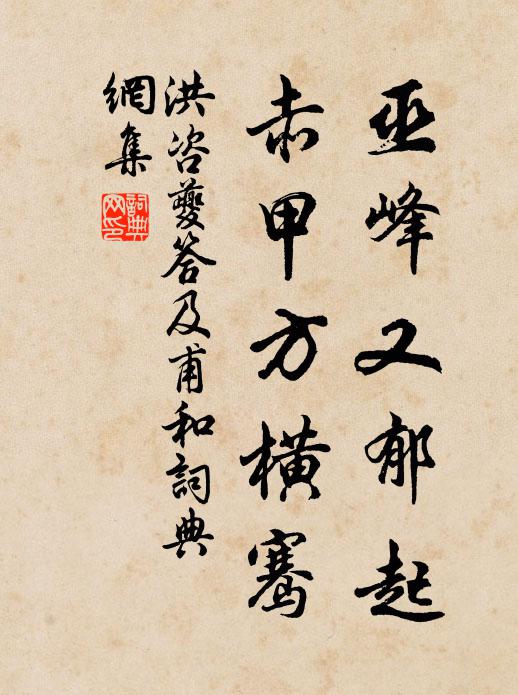 巫峰又郁起
赤甲方横骞
洪咨夔答及甫和詞典
網集
詞典
网印